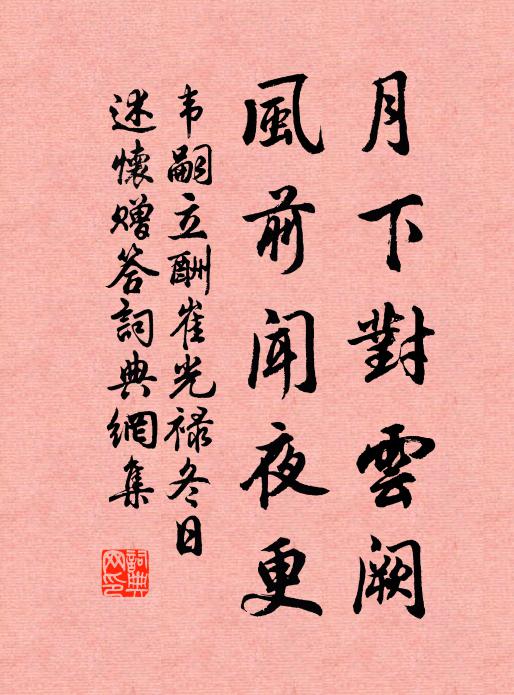 月下對雲闕
風前聞夜更
韦嗣立酬崔光禄冬日
述懷赠答詞典網集
詞典網印